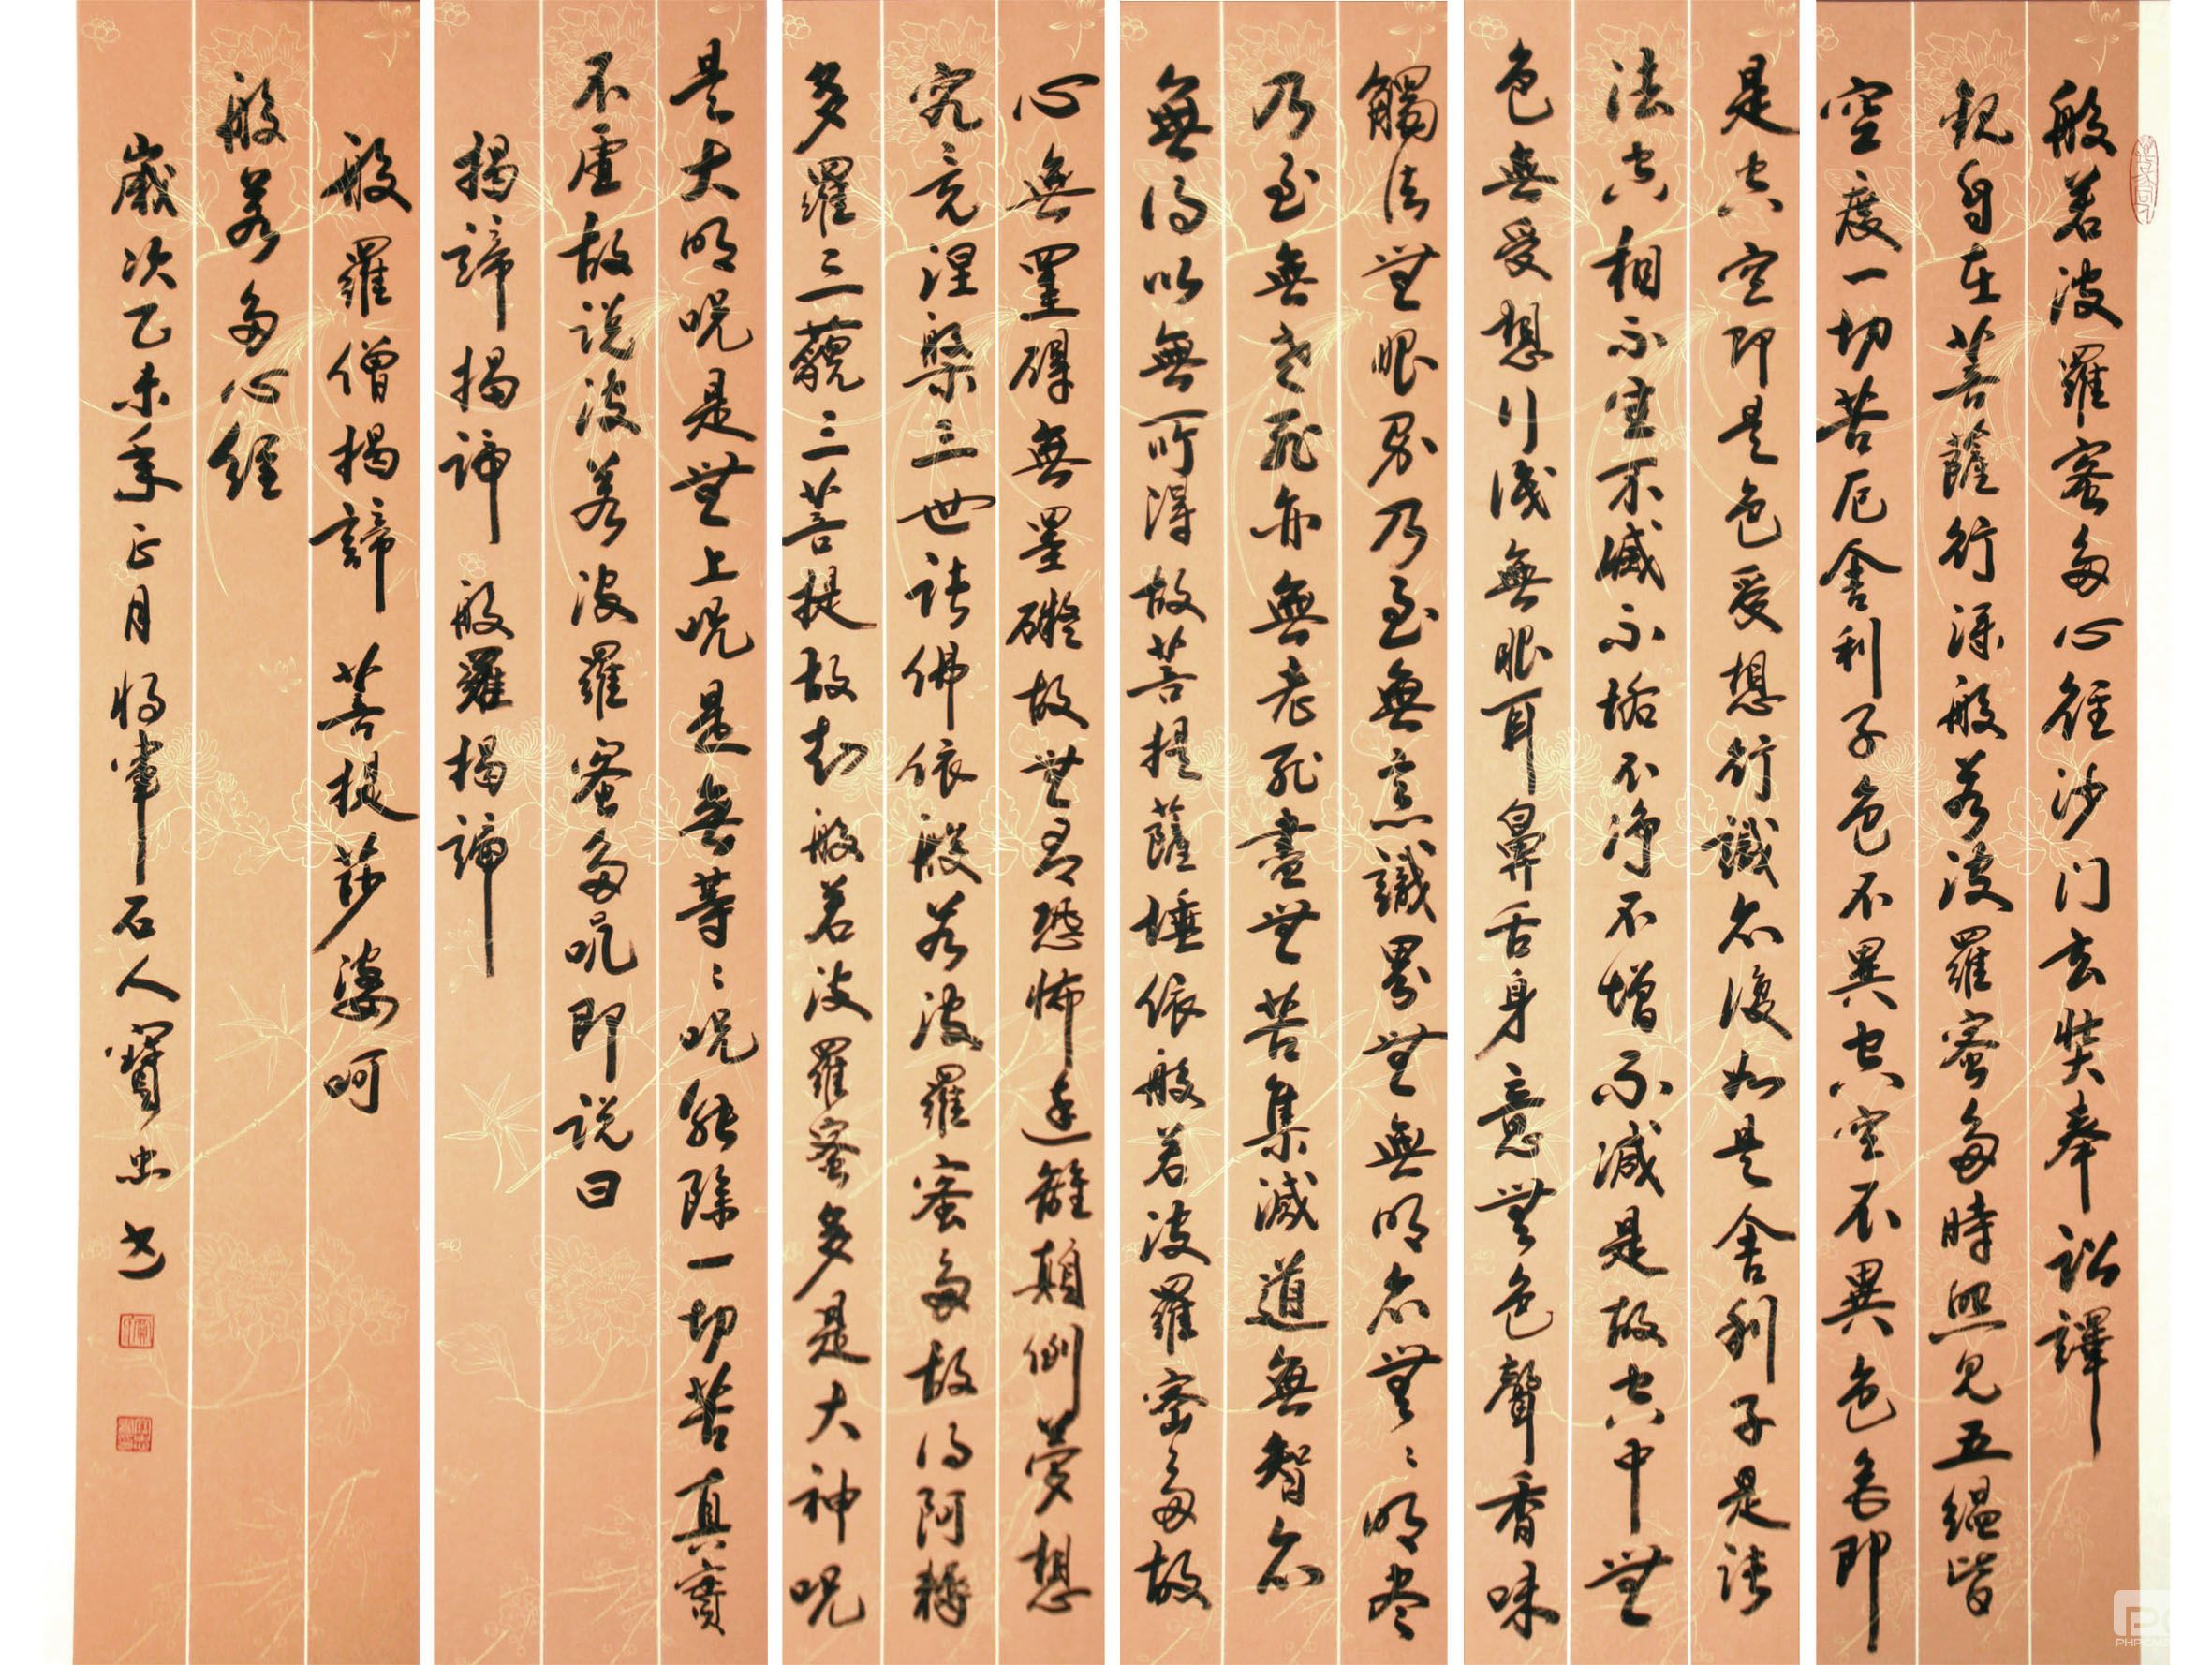 般若波羅蜜多心経沙门玄奘奉詔譯
觀自在菩薩行深般若波羅蜜多時照見五蘊皆
空度一切苦厄舍利子色不異空空不異色色即
是空空即是色受想行識亦復如是舍利子是諸
法空相不生不滅不垢不净不增不減是故空中無
色無受想行識無眼耳鼻舌身意無色聲香味
觸法無眼界乃至無意識界無無明亦無〻明尽
乃至無老死亦無老死盡無苦集滅道無智亦
無得以無所得故菩提薩埵依般若波羅密多故
心無罣礙無罣礙故無有恐怖遠離顛倒夢想
究竟涅槃三世諸佛依般若波羅蜜多故得阿耨
多羅三藐三菩提故知般若波羅蜜多是大神呪
是大明呪是無上呪是無等〻呪能除一切苦真實
不虛故说波若波羅蜜多呪即说曰
揭諦揭諦 般羅揭諦
般羅僧揭諦 菩提莎婆呵
般若多心經
歲次乙未年正月将軍石人寶忠书